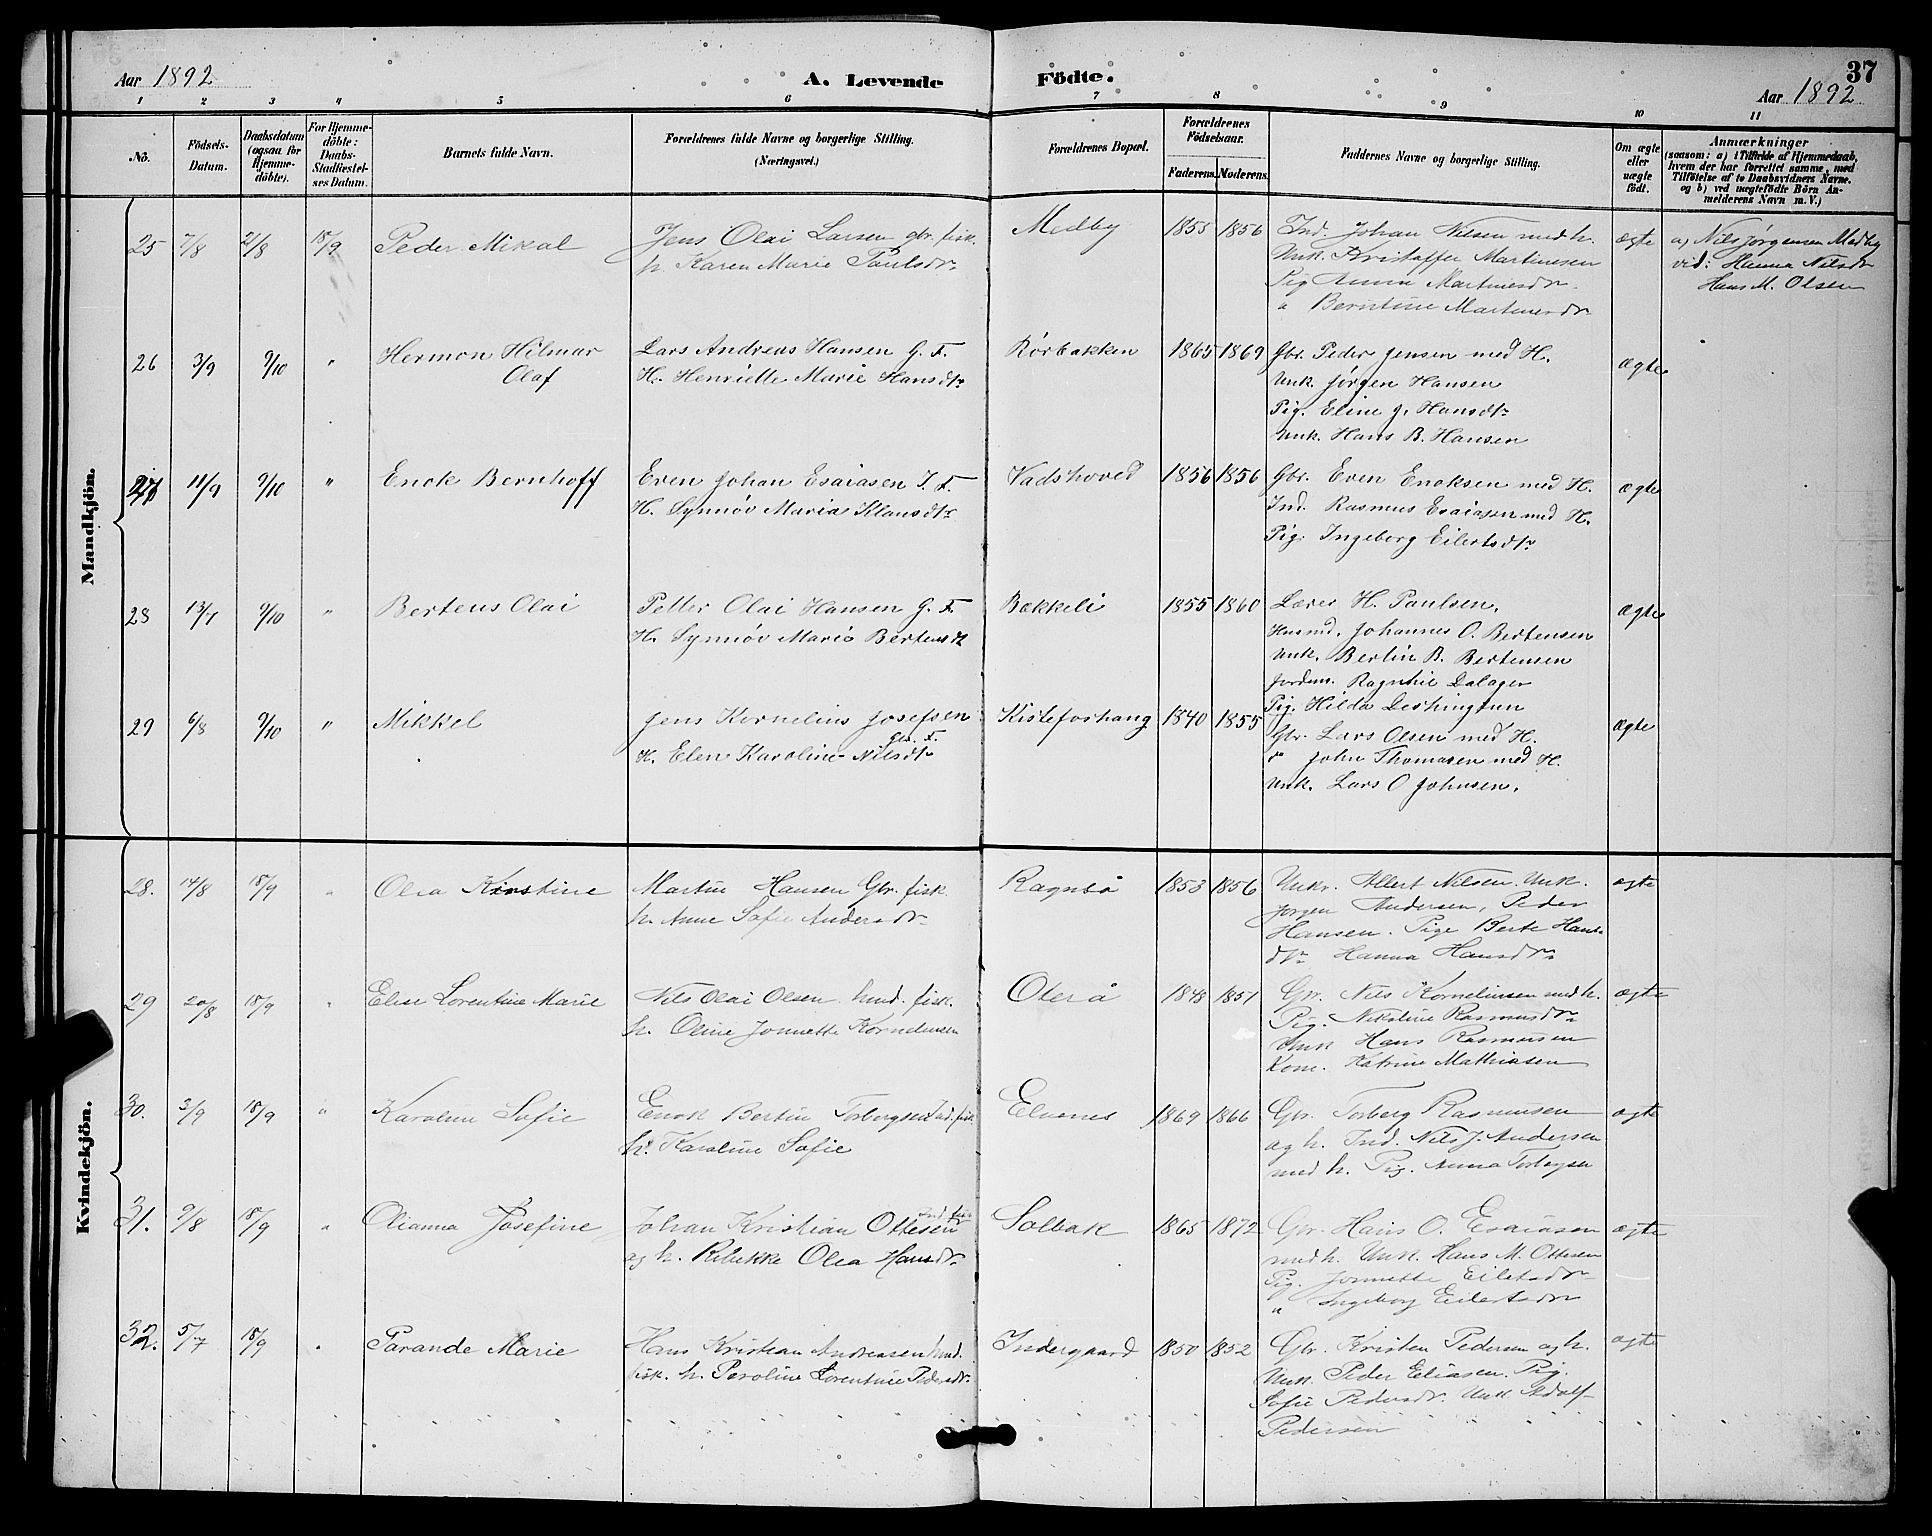 37
Aar 1892
A. Levende
Födte.
Aar 1892
1 2 3 4 5 6 7 8 9 10 11
No.
Födsels-Datum.
Daabsdatum (ogsaa for Hjemmedöbte).
For Hjemmedöbte: Daabs-Stadfæstelses Datum.
Barnets fulde Navn.
Forældrenes fulde Navne og borgerlige Stilling.
(Næringsvei.)
Forældrenes Bopæl.
Forældrenes Födselsaar.
Faderens. Moderens.
Faddernes Navne og borgerlige Stilling.
Om ægte eller uægte födt.
Anmærkninger
(saasom: a) i Tilfælde af Hjemmedaab,
hvem der har forrettet samme, med
Tilföielse af to Daabsvidners Navne.
og b) ved uægtefödte Börn An-
melderens Navn m. V.)
Mandkjön.
25 7/8 21/8 18/9 Peder Mikal
Jens Olai Larsen gbr. fisk.
h. Karen Marie Paulsdr
Medby 1855 1856
Ind. Johan Nilsen med h.
Unk. Kristoffer Martinesen
Pig Anna Martinesdr.
" Berntine Martinesdr
ægte
a) Nils Jørgensen Medby
vid: Hanna Nilsdr
Hans M. Olsen
26 3/9 9/10 " Hermon Hilmar
Olaf
Lars Andreas Hansen G. F.
H. Henriette Marie Hansdtr
Rørbakken 1865 1869
Gbr. Peder Jensen med H.
Unk. Jørgen Hansen
Pig. Eline J. Hansdtr
Unk. Hans B. Hansen
ægte
27 11/9 9/10 " Enok Bernhoff
Even Johan Esaiasen I. F.
H. Synnøv Marias Klausdtr
Vadshoved 1856 1856
Gbr. Even Enoksen med H.
Ind. Rasmus Esaiasen med H.
Pig. Ingeborg Eilertsdtr
ægte
28 13/7 9/10 " Bertens Olai
Petter Olai Hansen G. F.
H. Synnøv Marie Bertensdtr
Bakkeli 1855 1860
Lærer H. Paulsen,
Husmd. Johannes O. Bertensen
Unk. Bertin B. Bertensen
Jordm. Ragnhil Dalager
Pig. Hilda Leshington
ægte
29 6/8 9/10 " Mikkel
Jens Kornelius Josefsen
Gbr. F.
H. Elen Karoline Nilsdtr
Kistefoshaug 1840 1855
Gbr. Lars Olsen med H.
" John Thomasen med H.
Unk. Lars O Johnsen.
ægte
Kvindekjön.
28. 14/8 18/9 " Olea Kristine
Martin Hansen Gbr. fisk
h. Anne Sofie Andersdr
Ragnbø 1853 1856
Unkr. Albert Nilsen. Unk.
Jørgen Andersen, Peder
Hansen. Pige Berte Hans-
dr. Hanna Hansdr
ægte
29 20/8 18/9 " Elise Lorentine Marie
Nils Olai Olsen husd. fisk.
h. Oline Jonnette Korneliusen
Oterå 1848 1851
Gbr. Nils Korneliusen med h.
Pig. Nikoline Rasmusdr
Unk Hans Rasmusen
Kone. Katrine Mathiasen
ægte
30. 3/9 18/9 " Karoline Sofie
Enok Bertin Torbergsen Ind. fisk
h. Karoline Sofie
Elvenes 1869 1866
Gbr. Torberg Rasmusen
og h. Ind. Nils J. Andersen
med h. Pig. Anna Torbergsen
ægte
31. 9/8 18/9 " Olianna Josefine
Ind. fisk
Johan Kristian Ottesen
og h. Rebekke Olea Hansdr.
Solbak 1865 1872
Gbr. Hans O. Esaiasen
med h. Unk. Hans M. Ottesen
Pig. Jonnette Eilertsdr
" Ingeborg Eilertsdr
ægte
32. 5/7 18/9 " Parande Marie
Hans Kristian Andreasen husd.
fisk. h. Paroline Lorentine Pedersdr.
Indergaard 1850 1852
Gbr. Kristen Pedersen og h.
Unk. Peder Eliasen. Pig.
Sofie Pedersdr. Unk Adolf
Pedersen
ægte